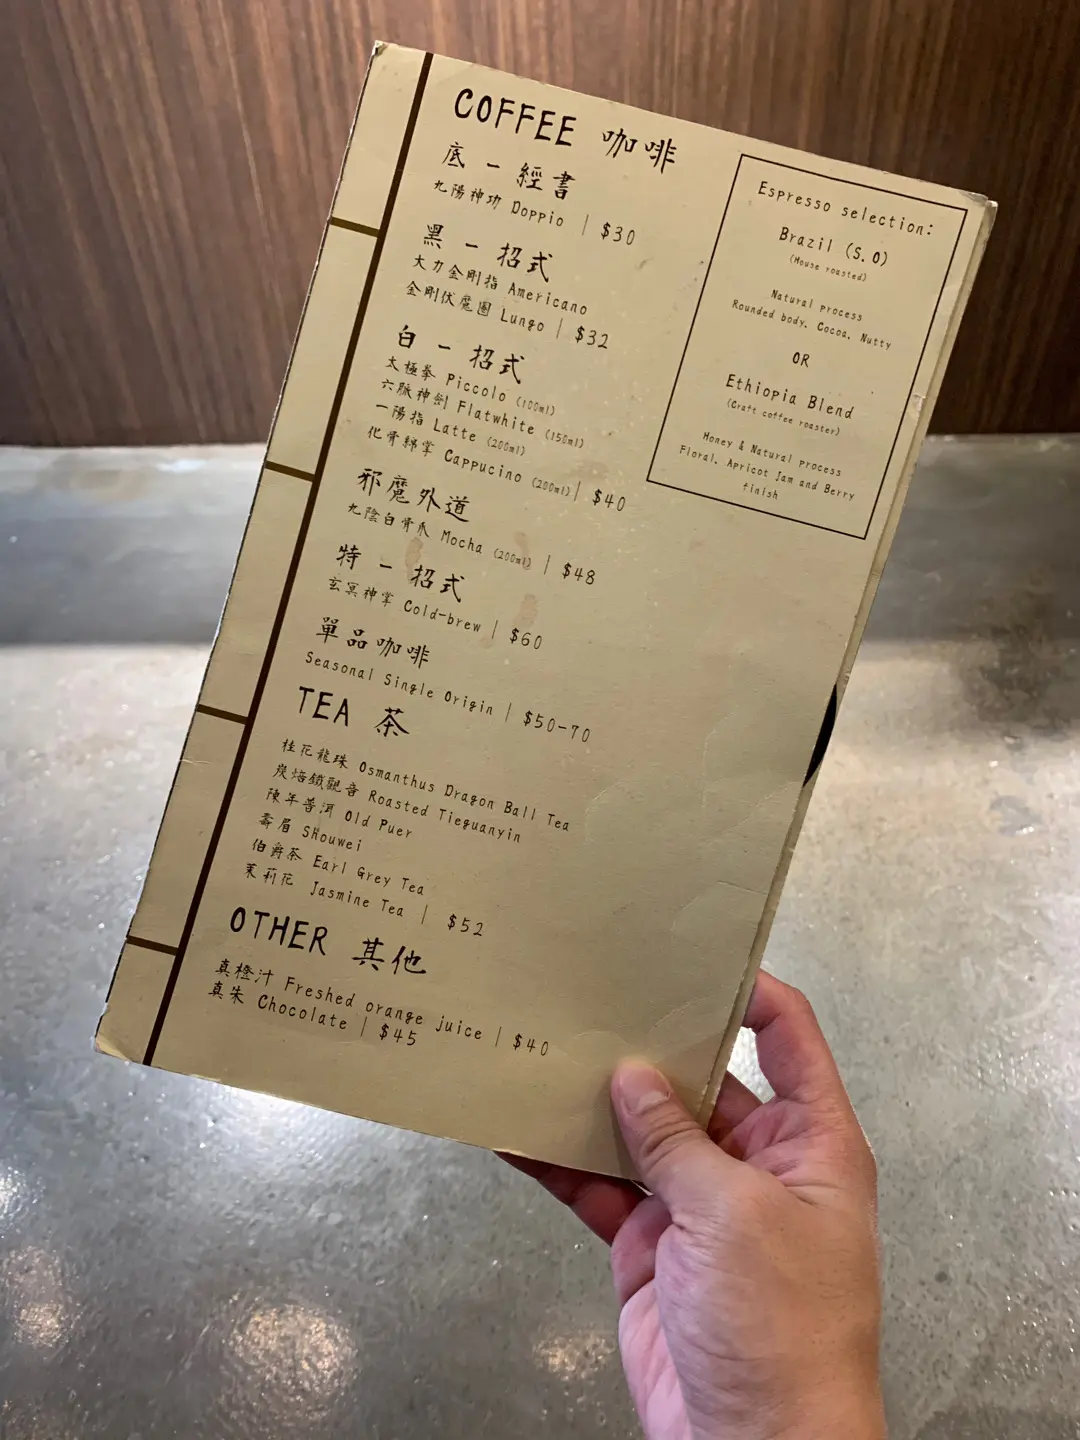 COFFEE 咖啡
底 - 經書
九陽神功 Doppio | $30
黑 - 招式
大力金剛指 Americano
金剛伏魔圈 Lungo | $32
白 - 招式
太極拳 Piccolo (100ml)
六脈神劍 Flatwhite (150ml)
一陽指 Latte (200ml)
化骨綿掌 Cappucino (200ml) | $40
邪魔外道
九陰白骨爪 Mocha (200ml) | $48
特 - 招式
玄冥神掌 Cold-brew | $60
單品咖啡
Seasonal Single Origin | $50-70
TEA 茶
桂花龍珠 Osmanthus Dragon Ball Tea
炭焙鐵觀音 Roasted Tieguanyin
陳年普洱 Old Puer
壽眉 SHouwei
伯爵茶 Earl Grey Tea
茉莉花 Jasmine Tea | $52
OTHER 其他
真橙汁 Freshed orange juice | $40
真朱 Chocolate | $45
Espresso selection:
Brazil (S.O)
(House roasted)
Natural process
Rounded body, Cocoa, Nutty
OR
Ethiopia Blend
(Craft coffee roaster)
Honey & Natural process
Floral, Apricot Jam and Berry
finish